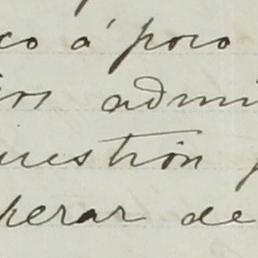 co á poco
ios admi
uestión p
perar de